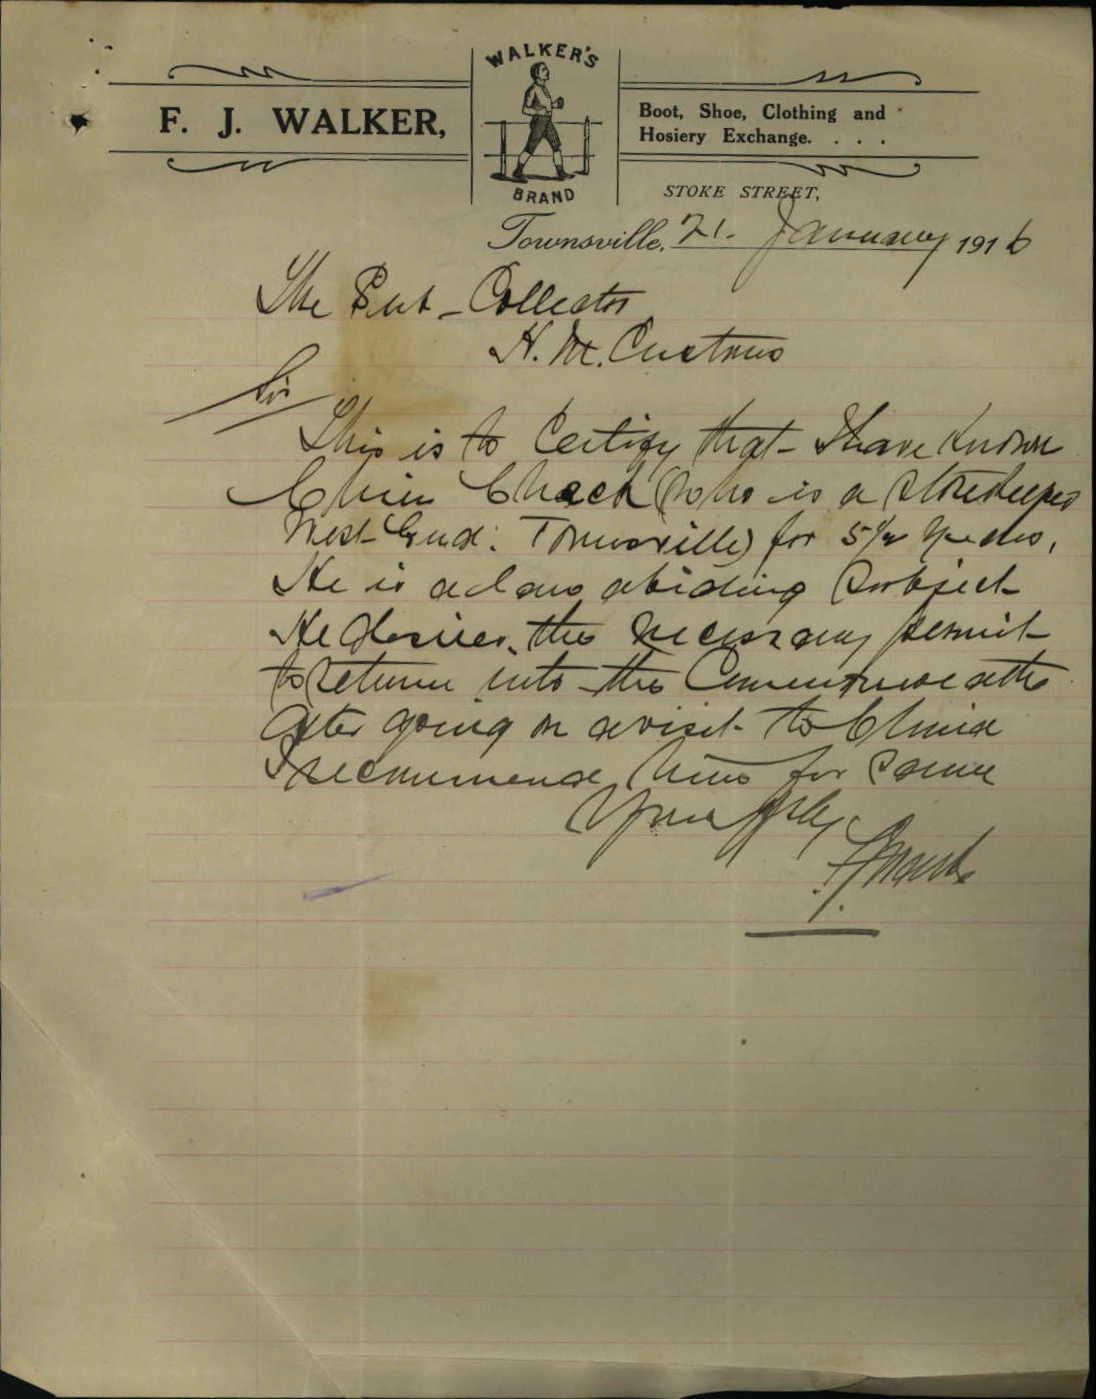 F. J. WALKER,
WALKER'S
BRAND
Boot, Shoe, Clothing and
Hosiery Exchange. . . .
STOKE STREET,
Townsville, 21. January 1916
The Sub-Collector
H. M. Customs
Sir
This is to Certify that I have known
Chin Chack (who is a storekeeper
West End: Townsville) for 5½ years,
He is a law abiding subject
He desires the necessary permit
to return into the Commonwealth
after going on a visit to China
I recommend him for same
Yours ffly